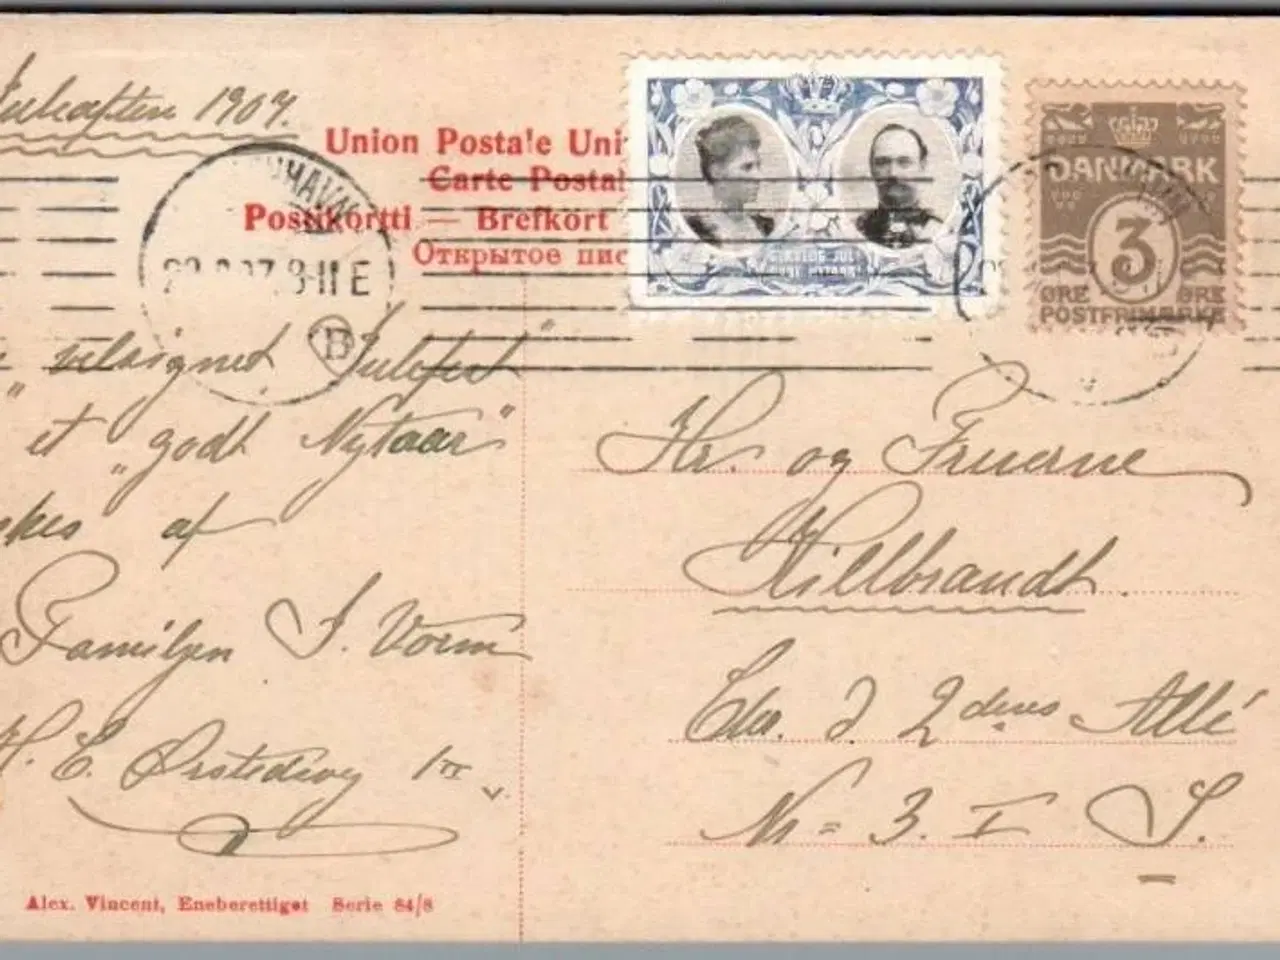 Juleaften 1907.
Union Postale Uni
Carte Postal
Postikortti — Brefkort
Открытое пис
8-11 E
B
DANMARK
3
ØRE ØRE
POSTFRIMÆRKE
velsignet Julefest"
et "godt Nytaar"
af
Familjen J. Vorm
H. C. Ørstedsvej
Hr. og Fruerne
Hillbrandt.
2den Allé
No = 3. I S.
Alex. Vincent, Eneberettiget Serie 84/8